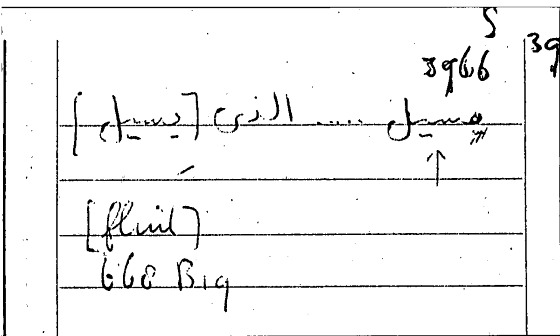 5
3966
39
مسيل ..... الذى [يسيل]
[fluid]
668 B19